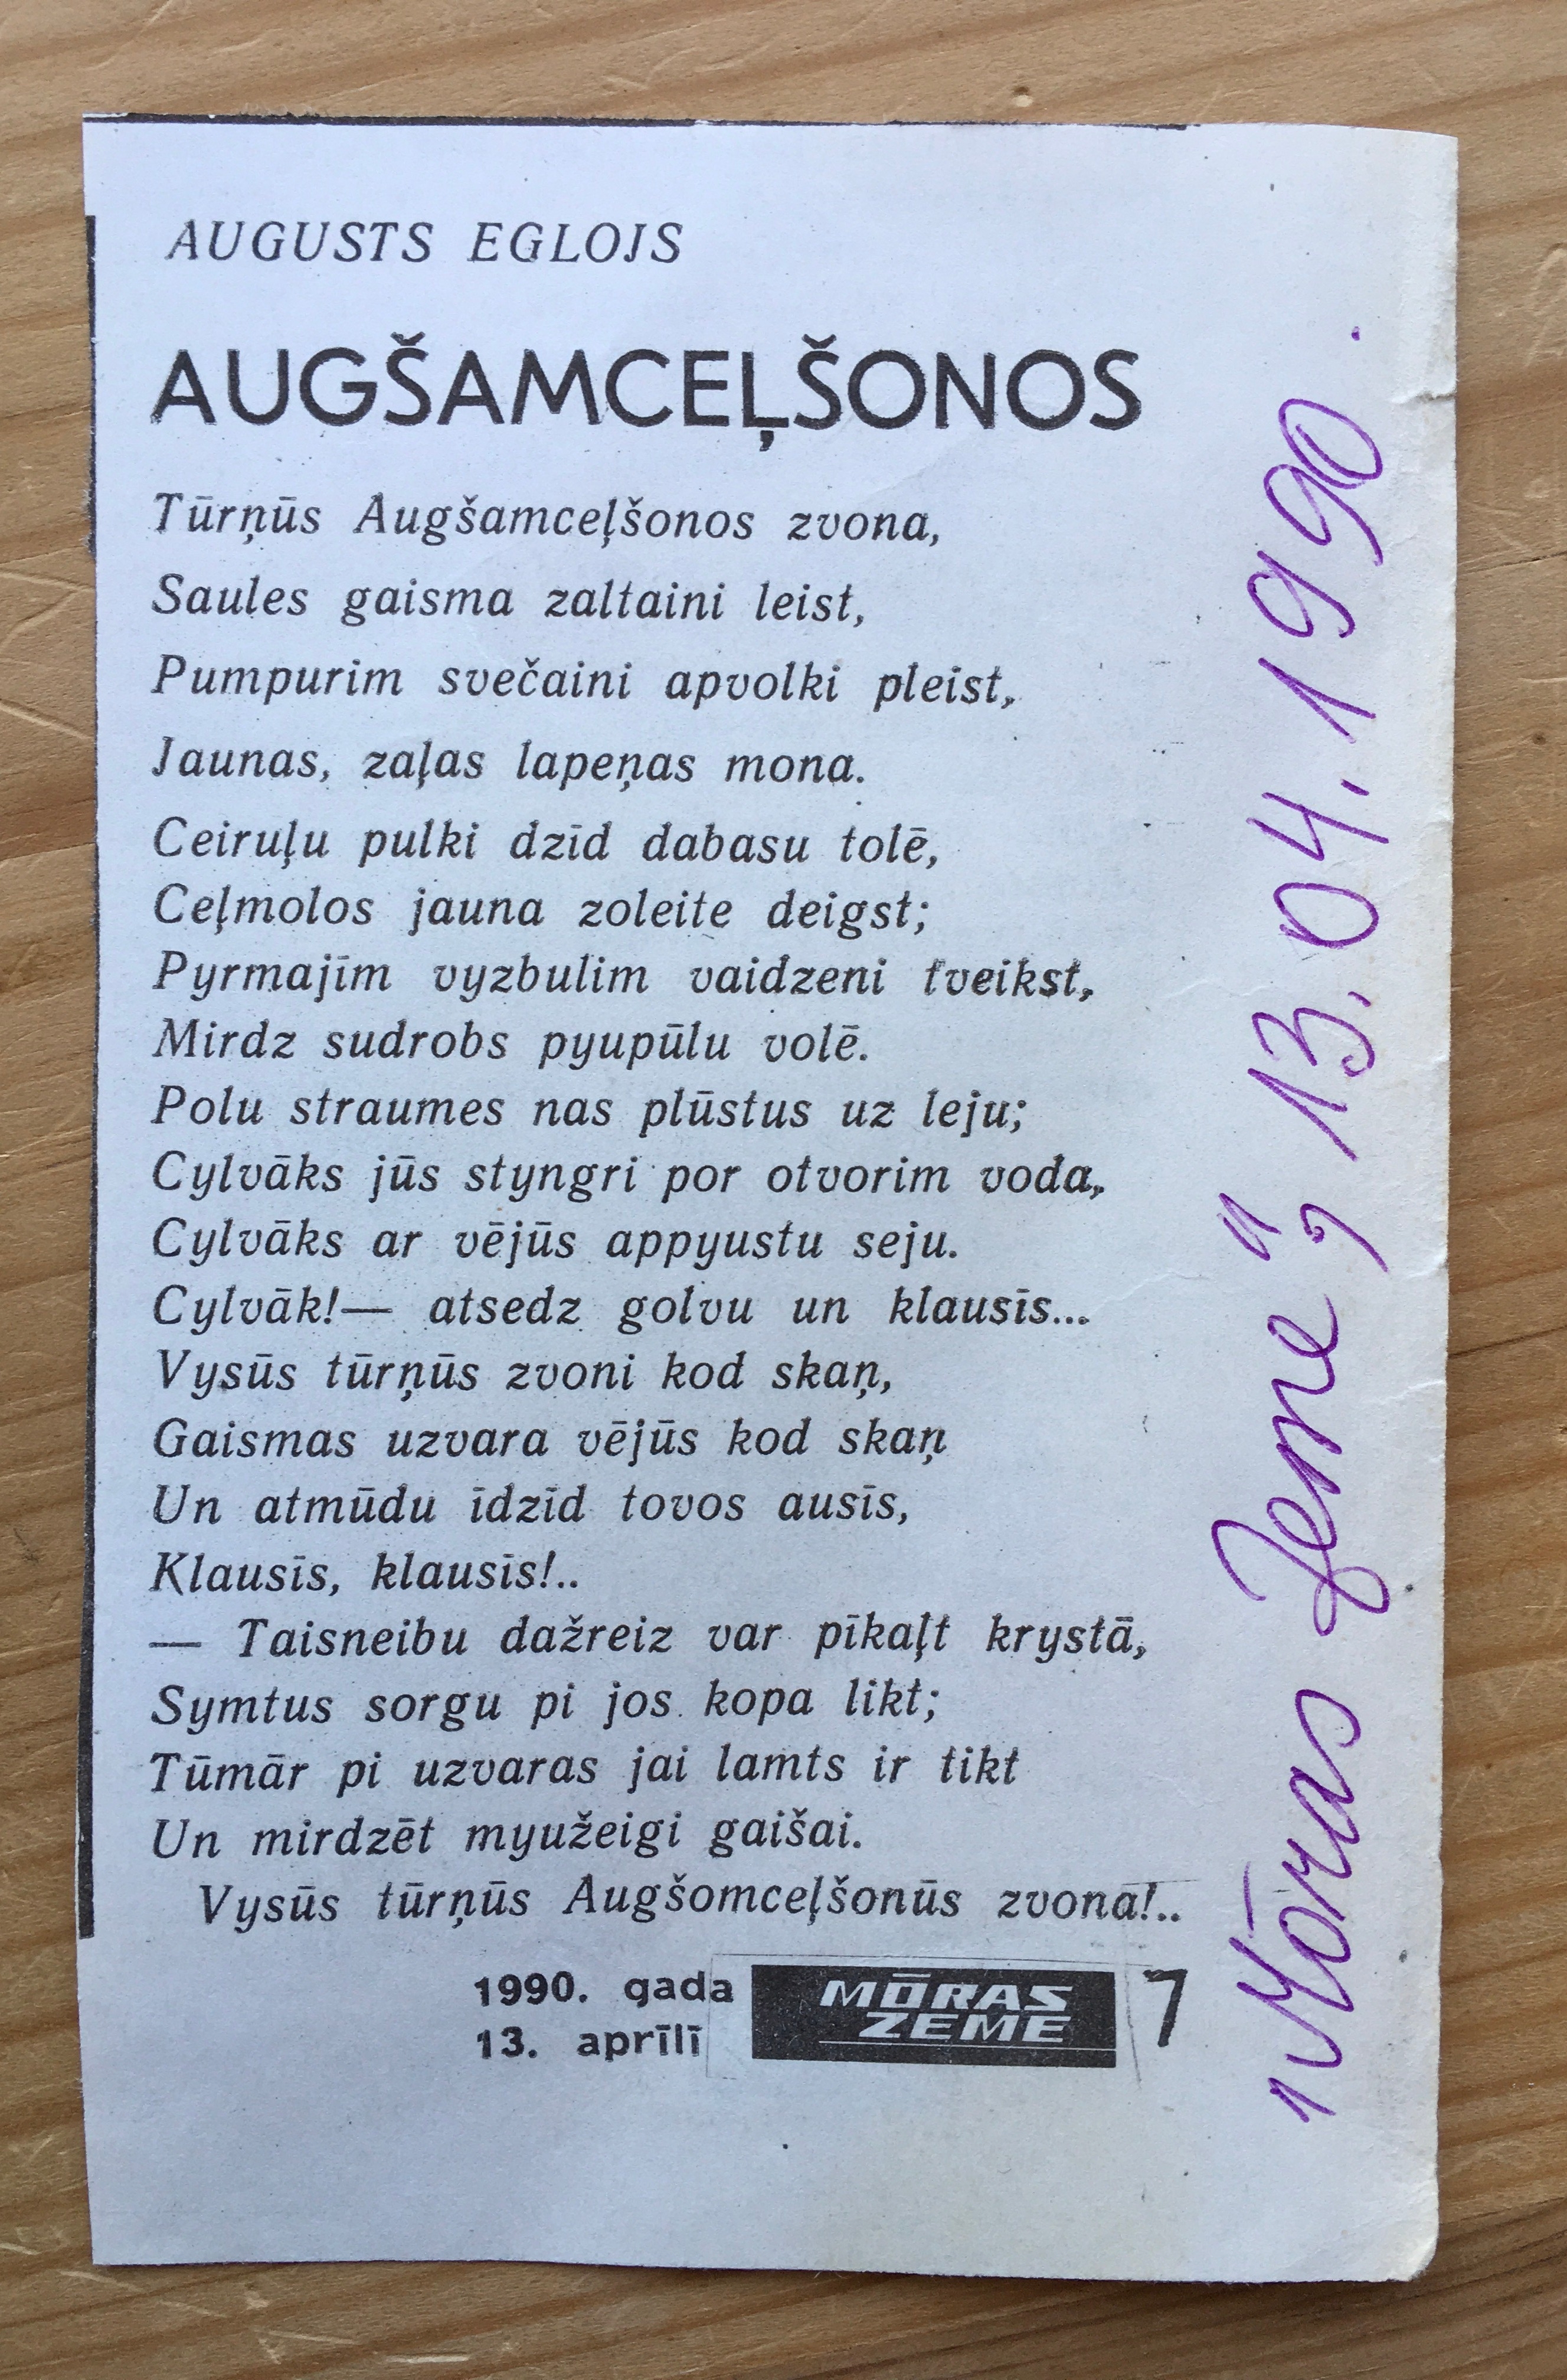 AUGUSTS EGLOJS
AUGŠAMCEĻŠONOS
Tūrņūs Augšamceļšonos zvona,
Saules gaisma zaltaini leist,
Pumpurim svečaini apvolki pleist,
Jaunas, zaļas lapeņas mona.
Ceiruļu pulki dzīd dabasu tolē,
Ceļmolos jauna zoleite deigst;
Pyrmajīm vyzbulim vaidzeni tveikst,
Mirdz sudrobs pyupūlu volē.
Polu straumes nas plūstus uz leju;
Cylvāks jūs styngri por otvorim voda,
Cylvāks ar vējūs appyustu seju.
Cylvāk!— atsedz golvu un klausīs...
Vysūs tūrņūs zvoni kod skaņ,
Gaismas uzvara vējūs kod skaņ
Un atmūdu īdzīd tovos ausīs,
Klausīs, klausīs!..
— Taisneibu dažreiz var pīkaļt krystā,
Symtus sorgu pi jos kopa likt;
Tūmār pi uzvaras jai lamts ir tikt
Un mirdzēt myužeigi gaišai.
Vysūs tūrņūs Augšomceļšonūs zvona!..
1990. gada
13. aprīlī
MŌRAS
ZEME
7
"Mōras Zeme", 13.04.1990.